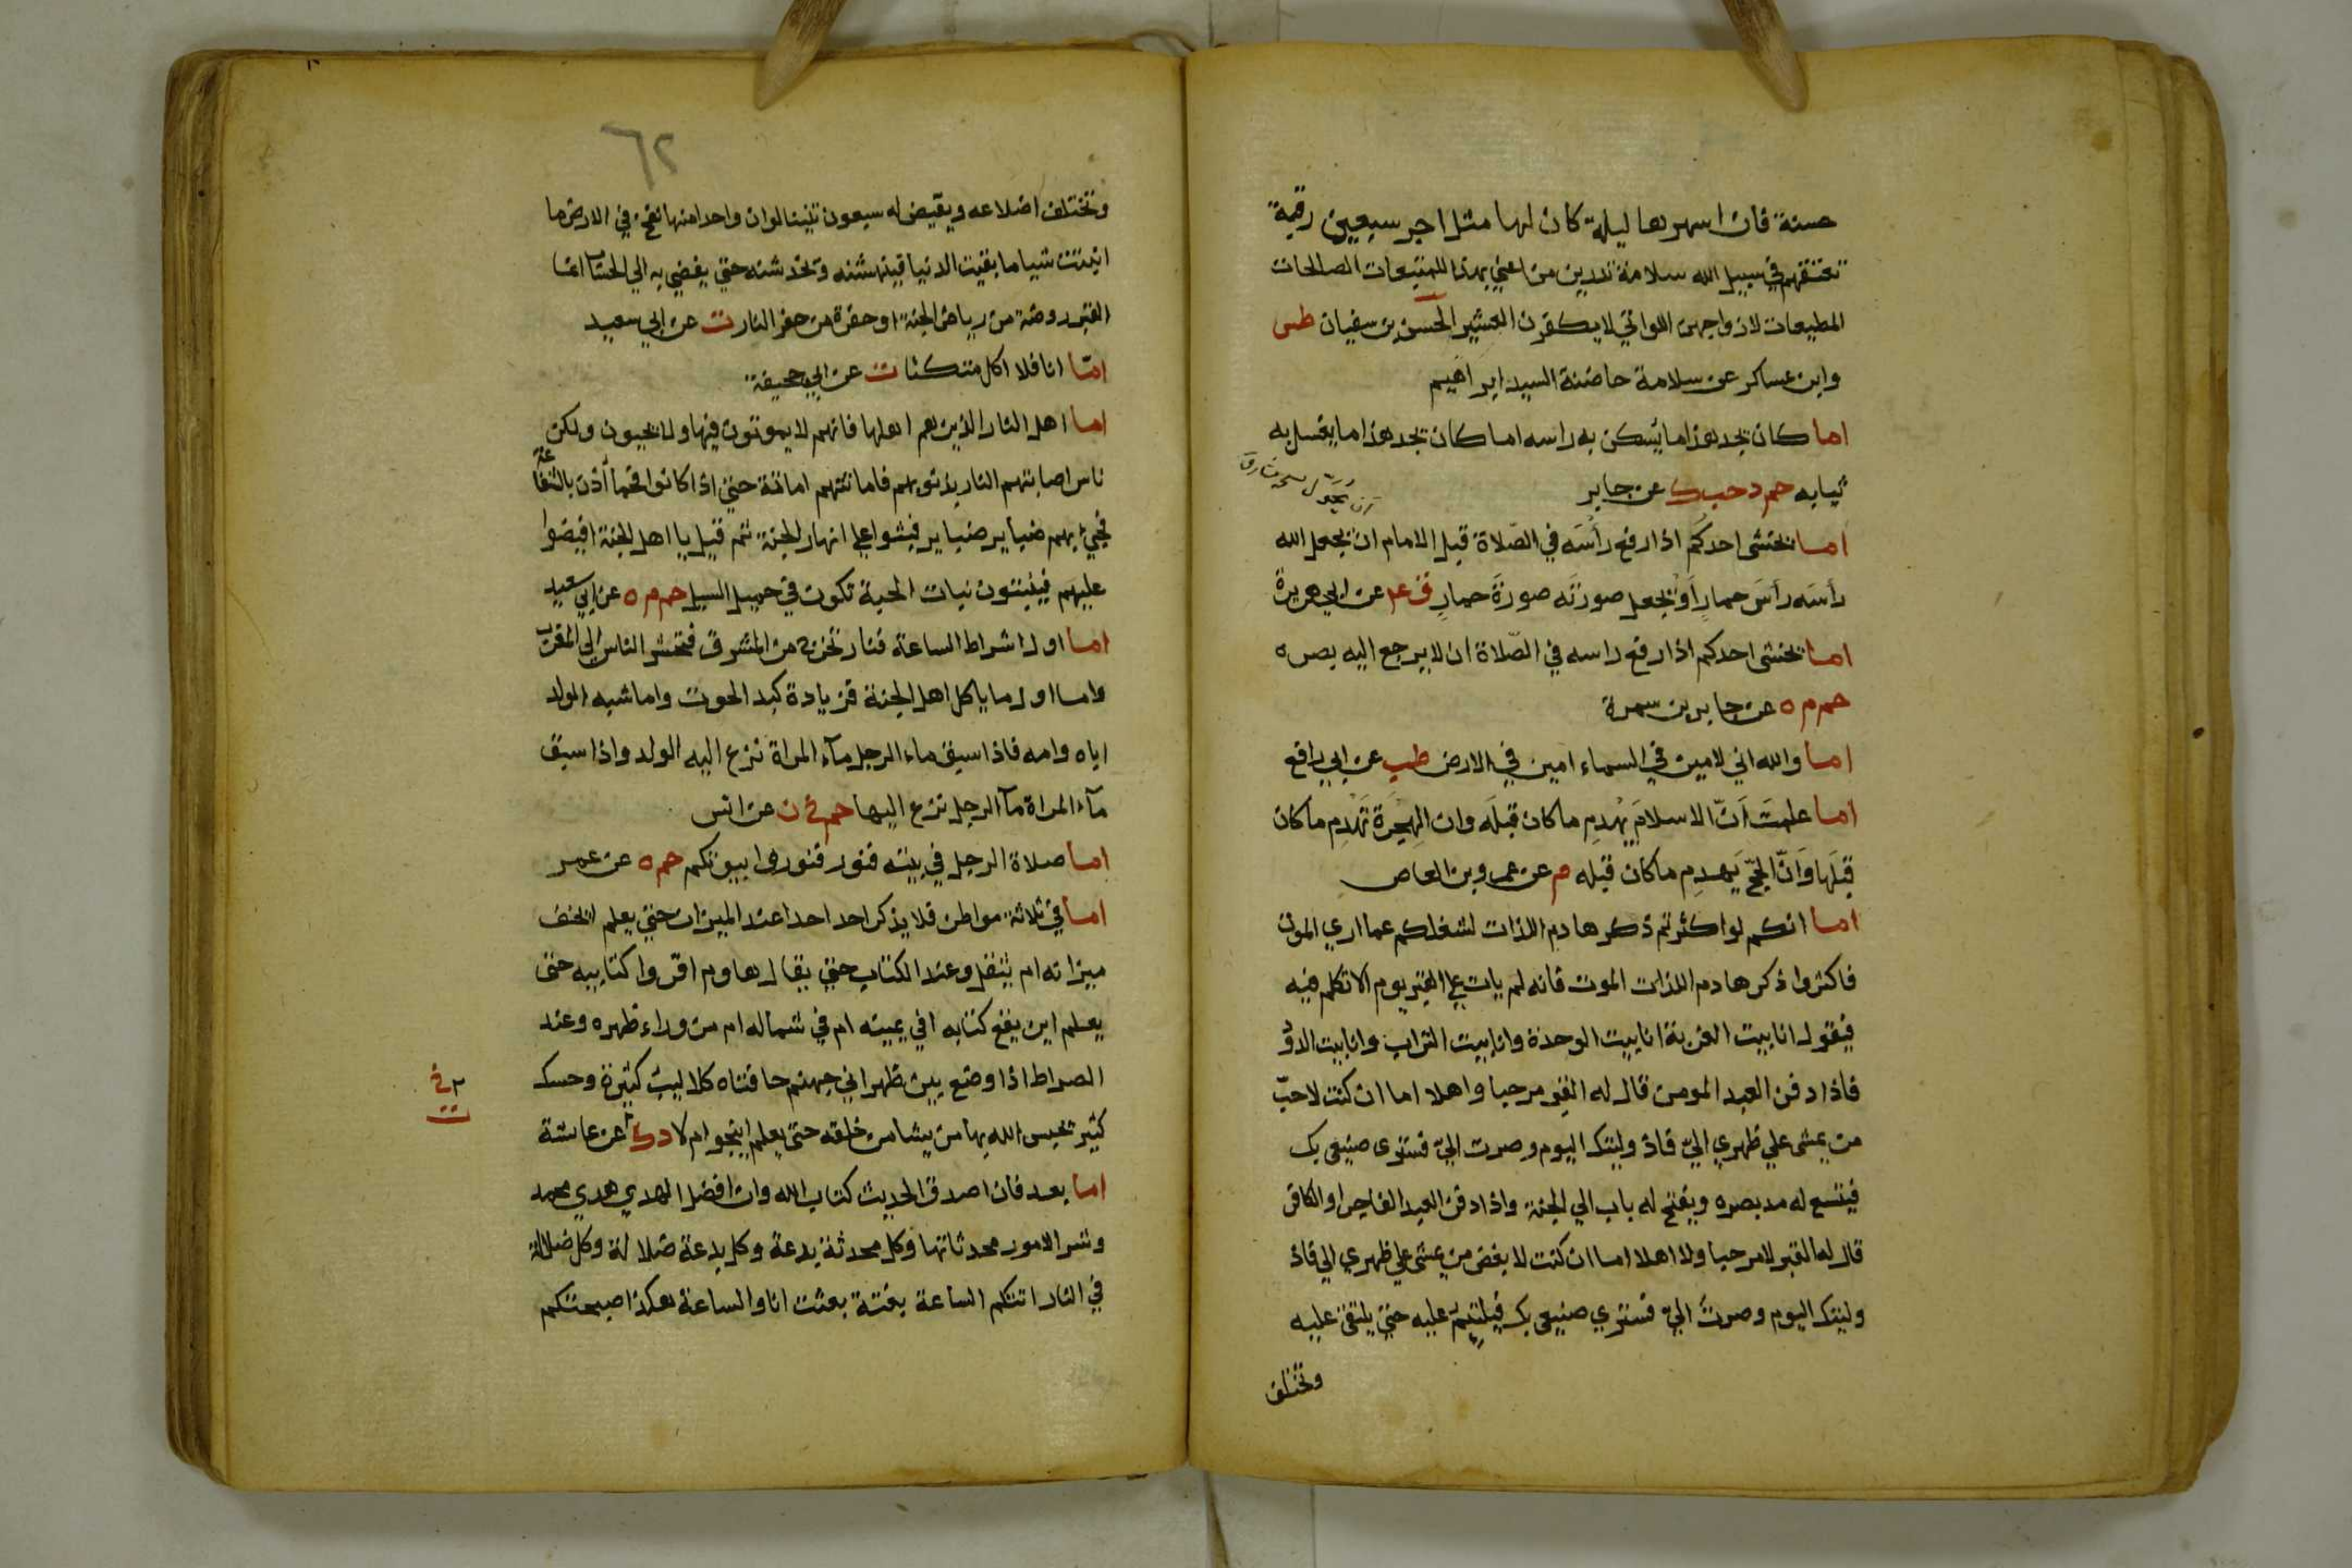 حسنة فان اسهرها ليلة كان لها مثل اجر سبعين رقبة
تعتقهم في سبيل الله سلامة تدرين من اعني بهذا للمتبعات الصالحات
المطيعات لازواجهن اللواتي لا يكفرن العشير الحسن بن سفيان طس
وابن عساكر عن سلامة حاضنة السيد ابراهيم
اما كان يجد هذا ما يسكن به راسه اما كان يجد هذا ما يغسل به
ثيابه حم د حب ك عن جابر
اما يخشى احدكم اذا رفع رأسه في الصلاة قبل الامام ان يجعل الله
رأسه رأس حمار أو يجعل صورته صورة حمار ق ع عن ابي هريرة
اما يخشى احدكم اذا رفع راسه في الصلاة ان لا يرجع اليه بصره
حم م ه عن جابر بن سمرة
اما والله اني لامين في السماء امين في الارض طب عن ابي رافع
اما علمت أن الاسلام يهدم ما كان قبله وان الهجرة تهدم ما كان
قبلها وأن الحج يهدم ما كان قبله م عن عمرو بن العاص
اما انكم لو اكثرتم ذكر هادم اللذات لشغلكم عما اري الموت
فاكثروا ذكر هادم اللذات الموت فانه لم يات علي القبر يوم الا تكلم فيه
فيقول انا بيت الغربة انا بيت الوحدة وانا بيت التراب وانا بيت الدود
فاذا دفن العبد المومن قال له القبر مرحبا واهلا اما ان كنت لاحب
من يمشى علي ظهري الي فاذ وليتك اليوم وصرت الي فسترى صنيعى بك
فيتسع له مد بصره ويفتح له باب الي الجنة واذا دفن العبد الفاجر او الكافر
قال له القبر لا مرحبا ولا اهلا اما ان كنت لا بغض من يمشى علي ظهري الي فاذ
وليتك اليوم وصرت الي فستري صنيعى بك فيلتئم عليه حتي يلتقي عليه
وتختلف
٦٢
وتختلف اضلاعه ويقيض له سبعون تنينا لو ان واحدا منها نفخ في الارض ما
انبتت شيا ما بقيت الدنيا فينهشنه وتخدشنه حتي يفضي به الي الحساب انما
القبر روضة من رياض الجنة او حفرة من حفر النار ت عن ابي سعيد
امّا انا فلا اكل متكئا ت عن ابي جحيفة
اما اهل النار الذين هم اهلها فانهم لا يموتون فيها ولا يحيون ولكن
ناس اصابتهم النار بذنوبهم فاماتتهم اماتة حتي اذا كانوا فحما أذن بالشفاعة
فجئ بهم ضباير ضباير فبثوا علي انهار الجنة ثم قيل يا اهل الجنة افيضوا
عليهم فينبتون نبات الحبة تكون في حميل السيل حم م ه عن ابي سعيد
اما اول اشراط الساعة فنار تخرج من المشرق فتحشر الناس الي المغرب
واما اول ما ياكل اهل الجنة فزيادة كبد الحوت واما شبه الولد
اباه وامه فاذا سبق ماء الرجل مآء المراة نزع اليه الولد واذا سبق
مآء المراة مآ الرجل نزع اليها حم خ ن عن انس
اما صلاة الرجل في بيته فنور فنوروا بيوتكم حم ه عن عمر
اما في ثلاثة مواطن فلا يذكر احد احدا عند الميزان حتي يعلم ايخف
ميزانه ام يثقل وعند الكتاب حتي يقال هاوم اقروا كتابيه حتى
يعلم اين يقع كتابه افي يمينه ام في شماله ام من وراء ظهره وعند
الصراط اذا وضع بين ظهراني جهنم حافتاه كلاليب كثيرة وحسك
كثير يحبس الله بها من يشا من خلقه حتى يعلم اينجوا ام لا د ك عن عائشة
اما بعد فان اصدق الحديث كتاب الله وان افضل الهدي هدي محمد
وشر الامور محدثاتها وكل محدثة بدعة وكل بدعة ضلالة وكل ضلالة
في النار اتتكم الساعة بغتة بعثت انا والساعة هكذا صبحتكم